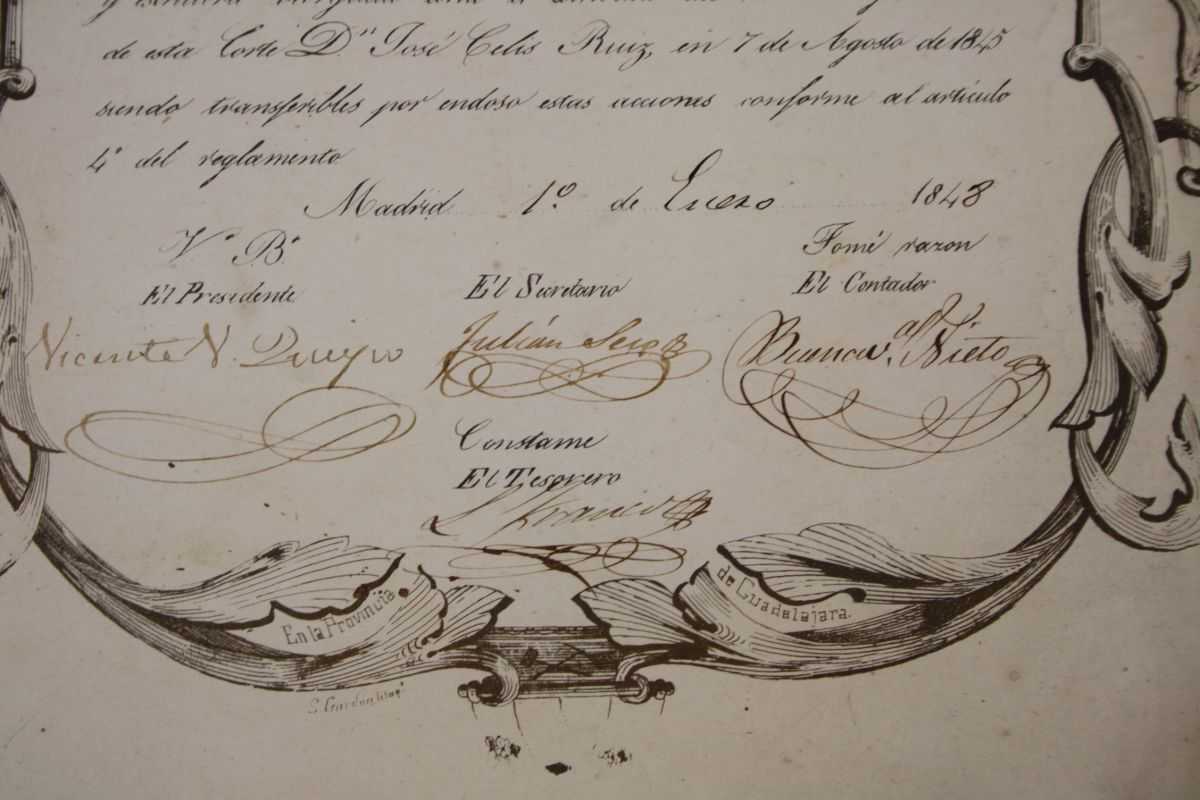 y escritura otorgada ante el
de esta Corte Dn José Celis Ruiz, en 7 de Agosto de 1845
siendo transferibles por endoso estas acciones conforme al artículo
4º del reglamento
Madrid 1º de Enero 1848
Vº Bº
Tomé razon
El Presidente
El Secretario
El Contador
Vicente V. Queypo
Julián
Buenav.ª Nieto
Constame
El Tesorero
En la Provincia
de Guadalajara.